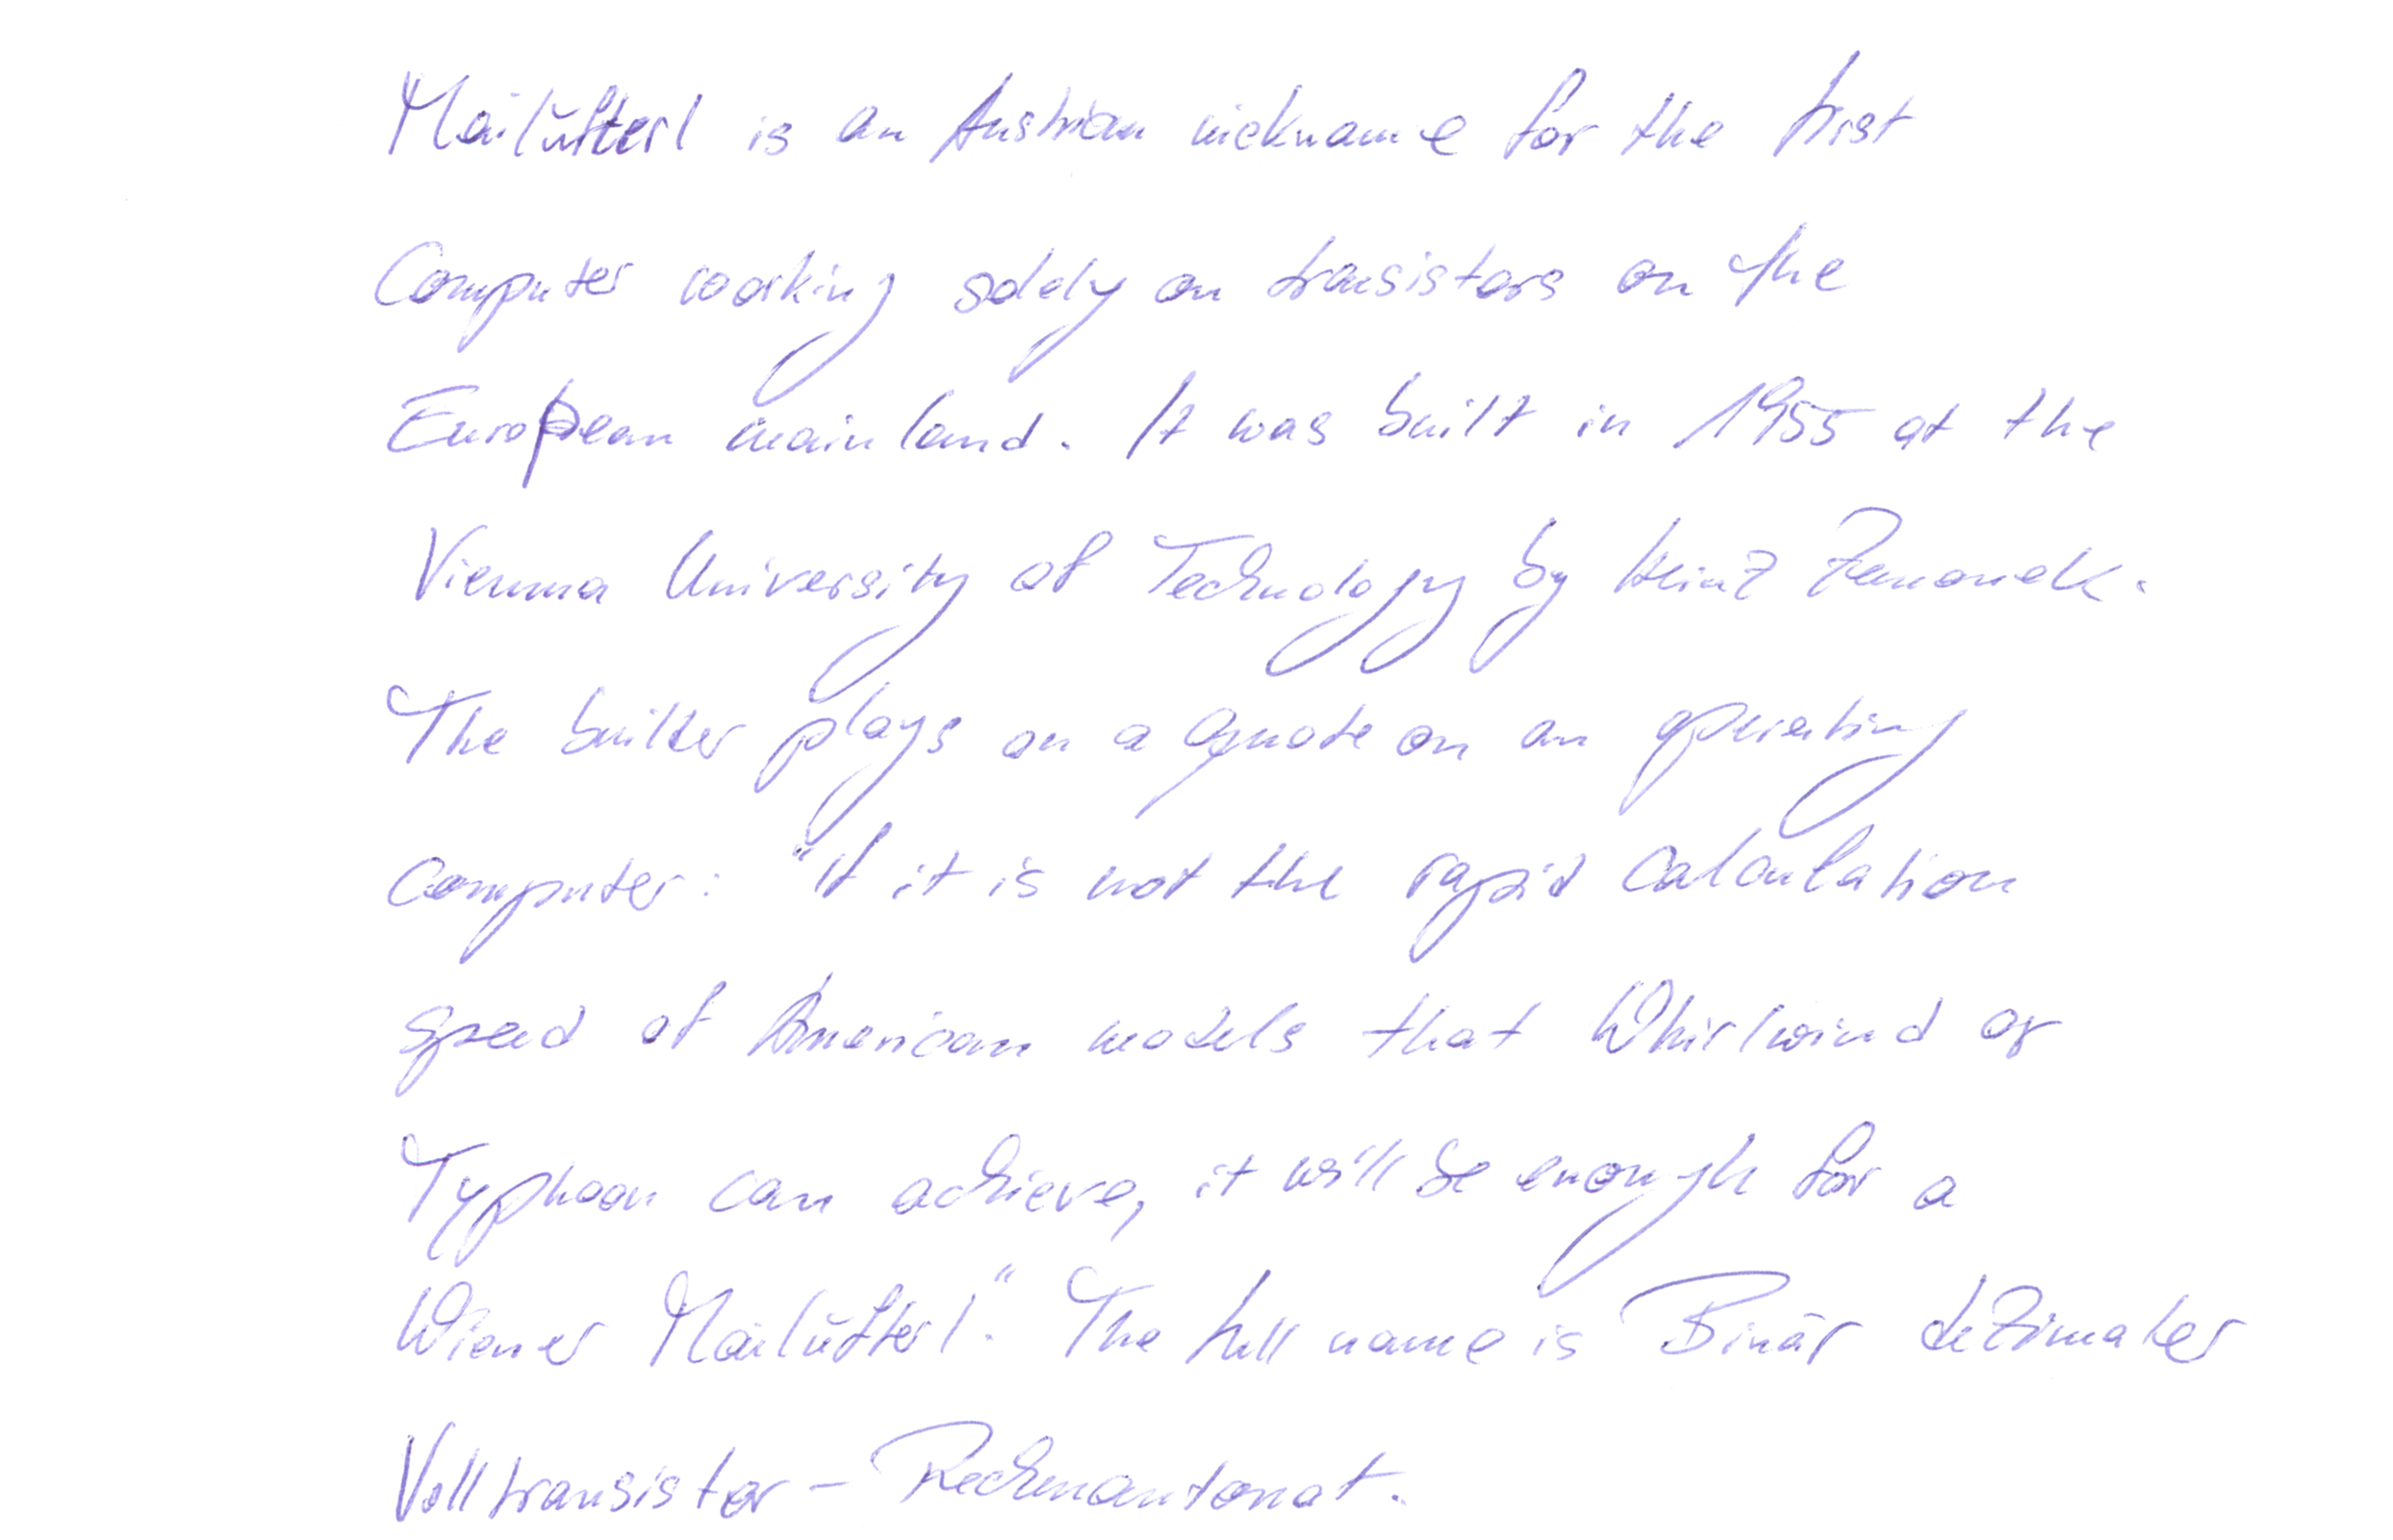 Mailüfterl is an Austrian nickname for the first
Computer working solely on transistors on the
European mainland. It was built in 1955 at the
Vienna University of Technology by Heinz Zemanek.
The builder plays on a quote on an operating
computer: "If it is not the rapid calculation
speed of American models that Whirlwind or
Typhoon can achieve, it will be enough for a
Wiener Mailüfterl". The full name is Binär dezimaler
Volltransistor - Rechenautomat.